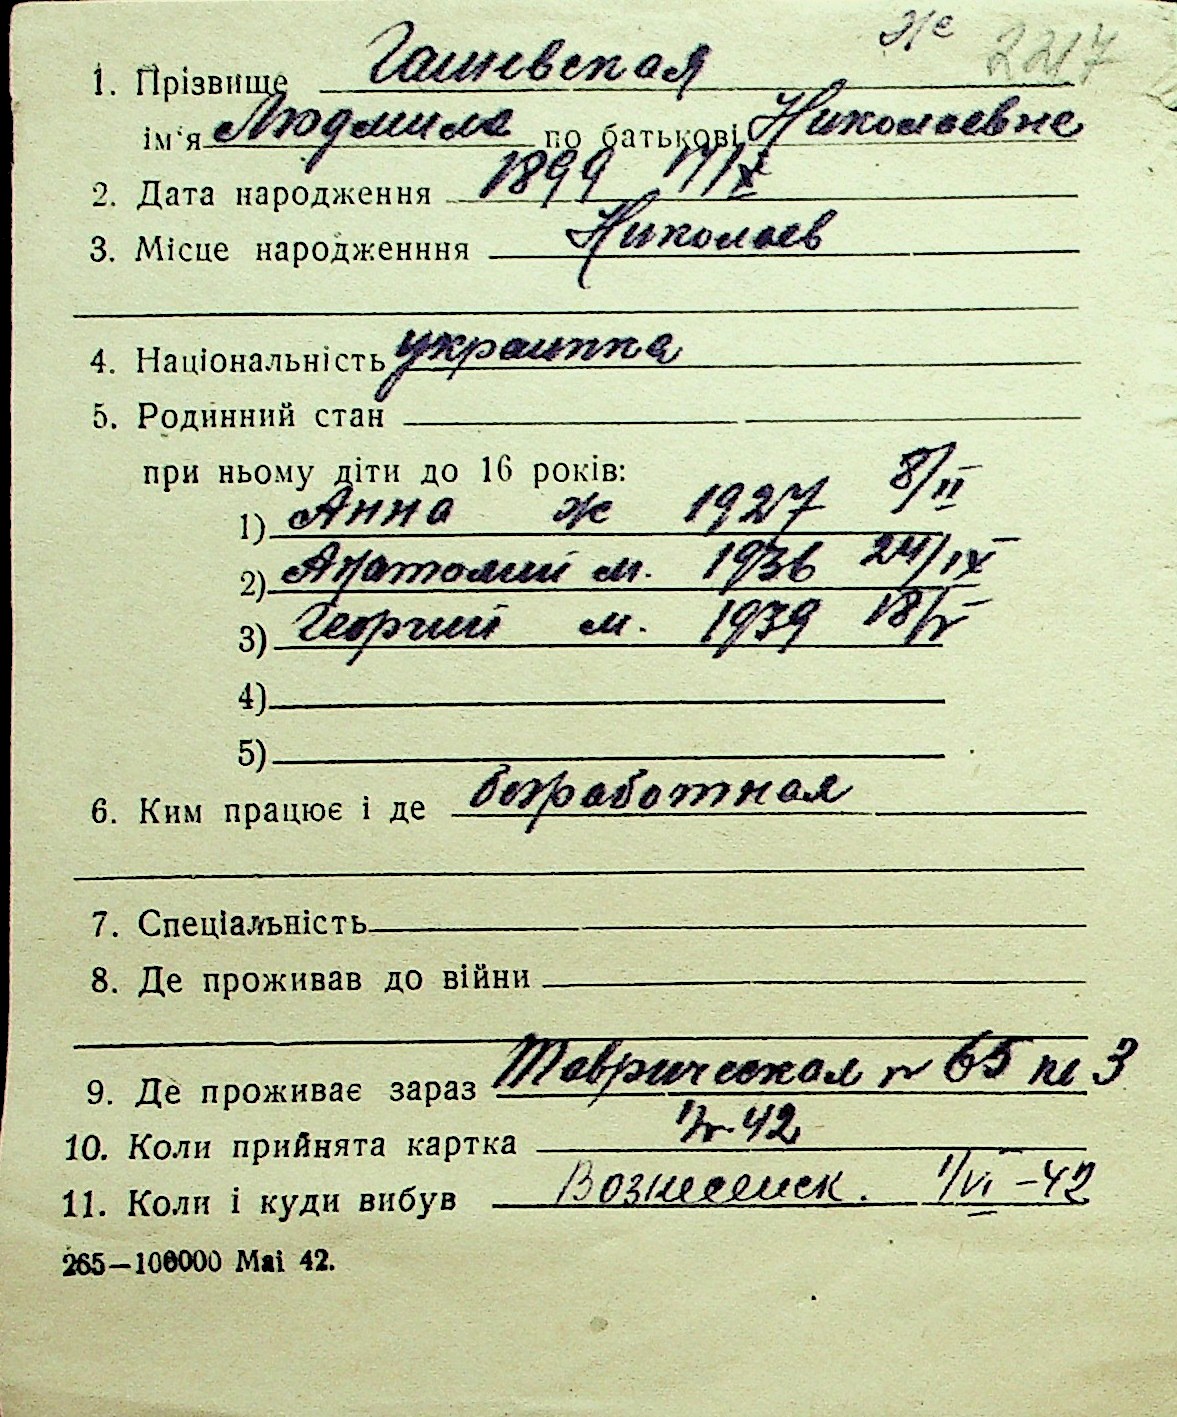 Же 2217
1. Прізвище Гашевская
ім'я Людмила по батькові Николаевне
2. Дата народження 1899 17/X
3. Місце народженння Николаев
4. Національність украинка
5. Родинний стан
при ньому діти до 16 років:
1) Анна ж 1927 8/II
2) Анатолий м. 1936 24/IX
3) Георгий м. 1939 18/V
4)
5)
6. Ким працює і де безработная
7. Спеціальність
8. Де проживав до війни
9. Де проживає зараз Таврическая № 65 кв 3
10. Коли прийнята картка 1/V-42
11. Коли і куди вибув Вознесенск. 1/VI-42
265—100000 Mai 42.